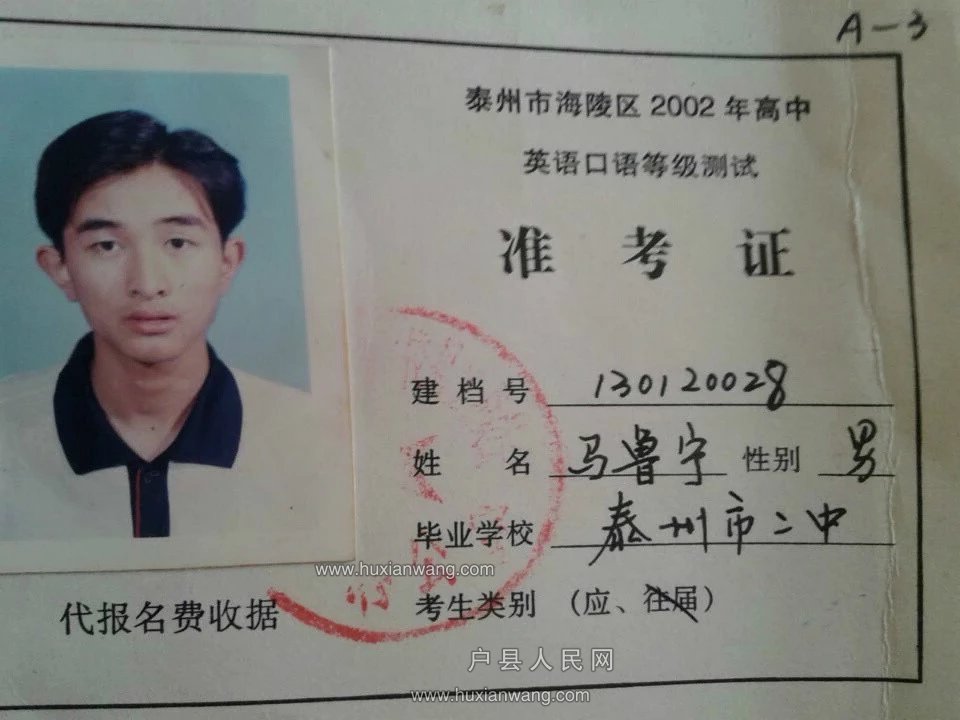 A-3
泰州市海陵区2002年高中
英语口语等级测试
准考证
建档号 130120028
姓名 马鲁宁 性别 男
毕业学校 泰州市二中
www.huxianwang.com
代报名费收据
考生类别 (应、往届)
户县人民网
www.huxianwang.com